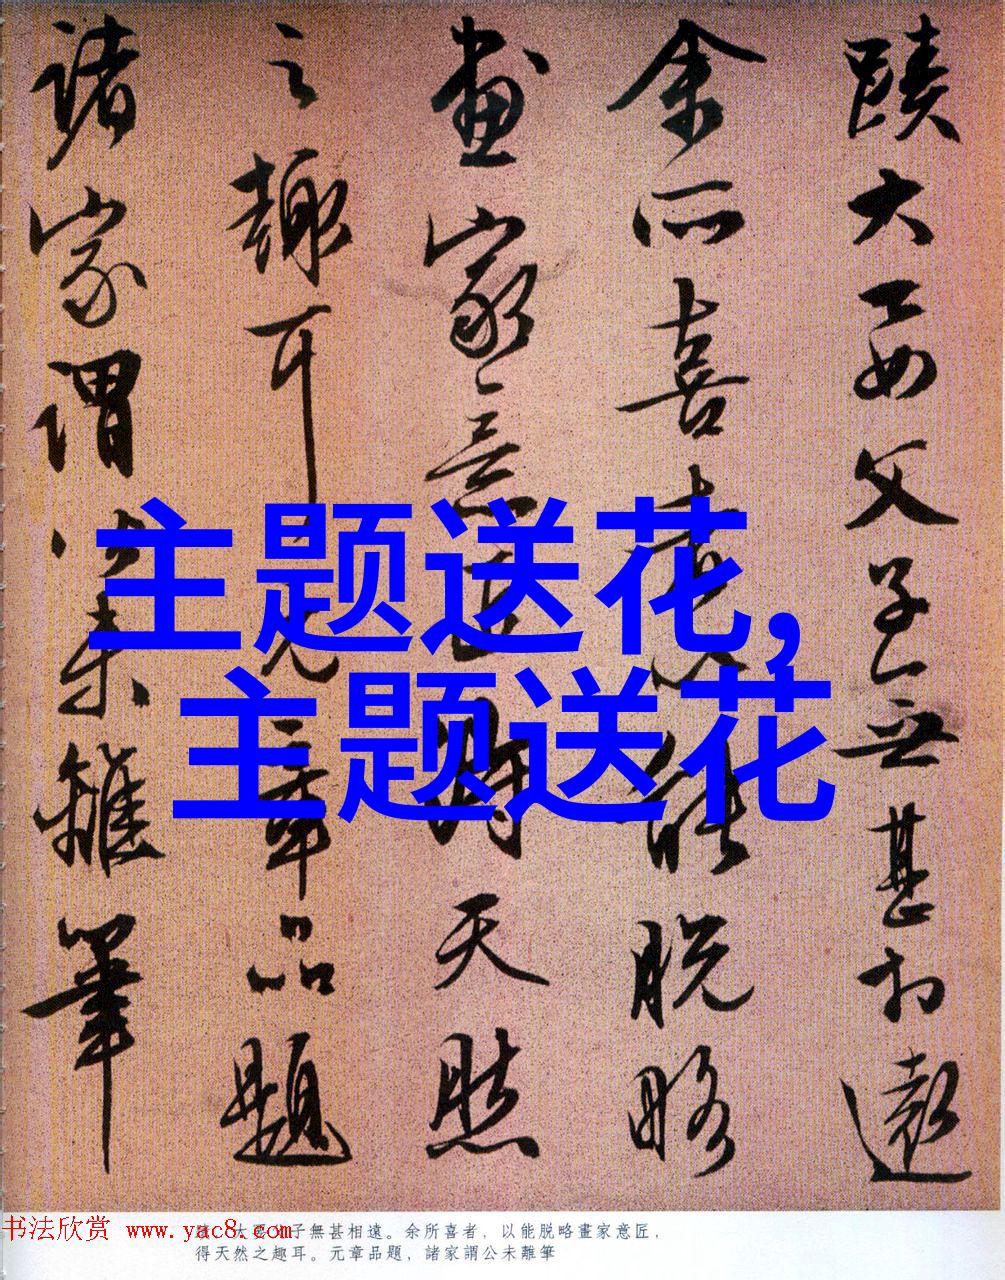 蹟大要父子無甚相遠
余所喜者以能脱略
畫家意匠得天然
之趣耳元章品題
諸家謂公未離筆
主题送花,
主题送花
书法欣赏 www.yac8.com
大要父子無甚相遠。余所喜者，以能脱略畫家意匠，
得天然之趣耳。元章品題，諸家謂公未離筆